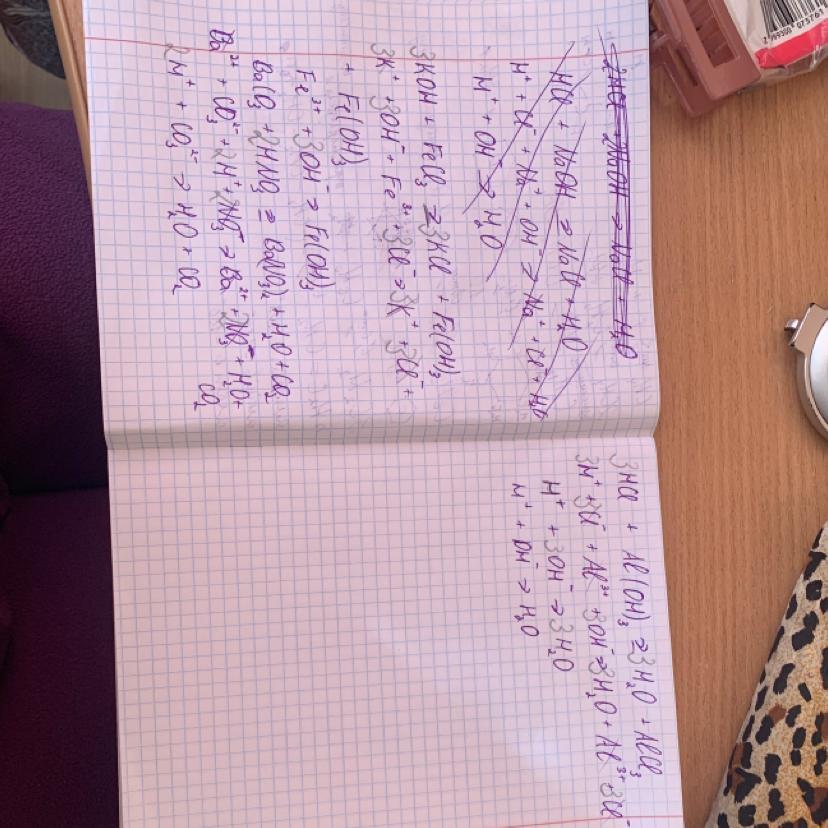 2HCl + 2NaOH → NaCl + H₂O
HCl + NaOH → NaCl + H₂O
H⁺ + Cl⁻ + Na⁺ + OH⁻ → Na⁺ + Cl⁻ + H₂O
H⁺ + OH⁻ → H₂O
3KOH + FeCl₃ → 3KCl + Fe(OH)₃
3K⁺ + 3OH⁻ + Fe³⁺ + 3Cl⁻ → 3K⁺ + 3Cl⁻ +
+ Fe(OH)₃
Fe³⁺ + 3OH⁻ → Fe(OH)₃
BaCO₃ + 2HNO₃ = Ba(NO₃)₂ + H₂O + CO₂
Ba²⁺ + CO₃²⁻ + 2H⁺ + 2NO₃⁻ → Ba²⁺ + 2NO₃⁻ + H₂O +
CO₂
2H⁺ + CO₃²⁻ → H₂O + CO₂
3HCl + Al(OH)₃ → 3H₂O + AlCl₃
3H⁺ + 3Cl⁻ + Al³⁺ + 3OH⁻ → 3H₂O + Al³⁺ + 3Cl⁻
H⁺ + 3OH⁻ → 3H₂O
H⁺ + OH⁻ → H₂O